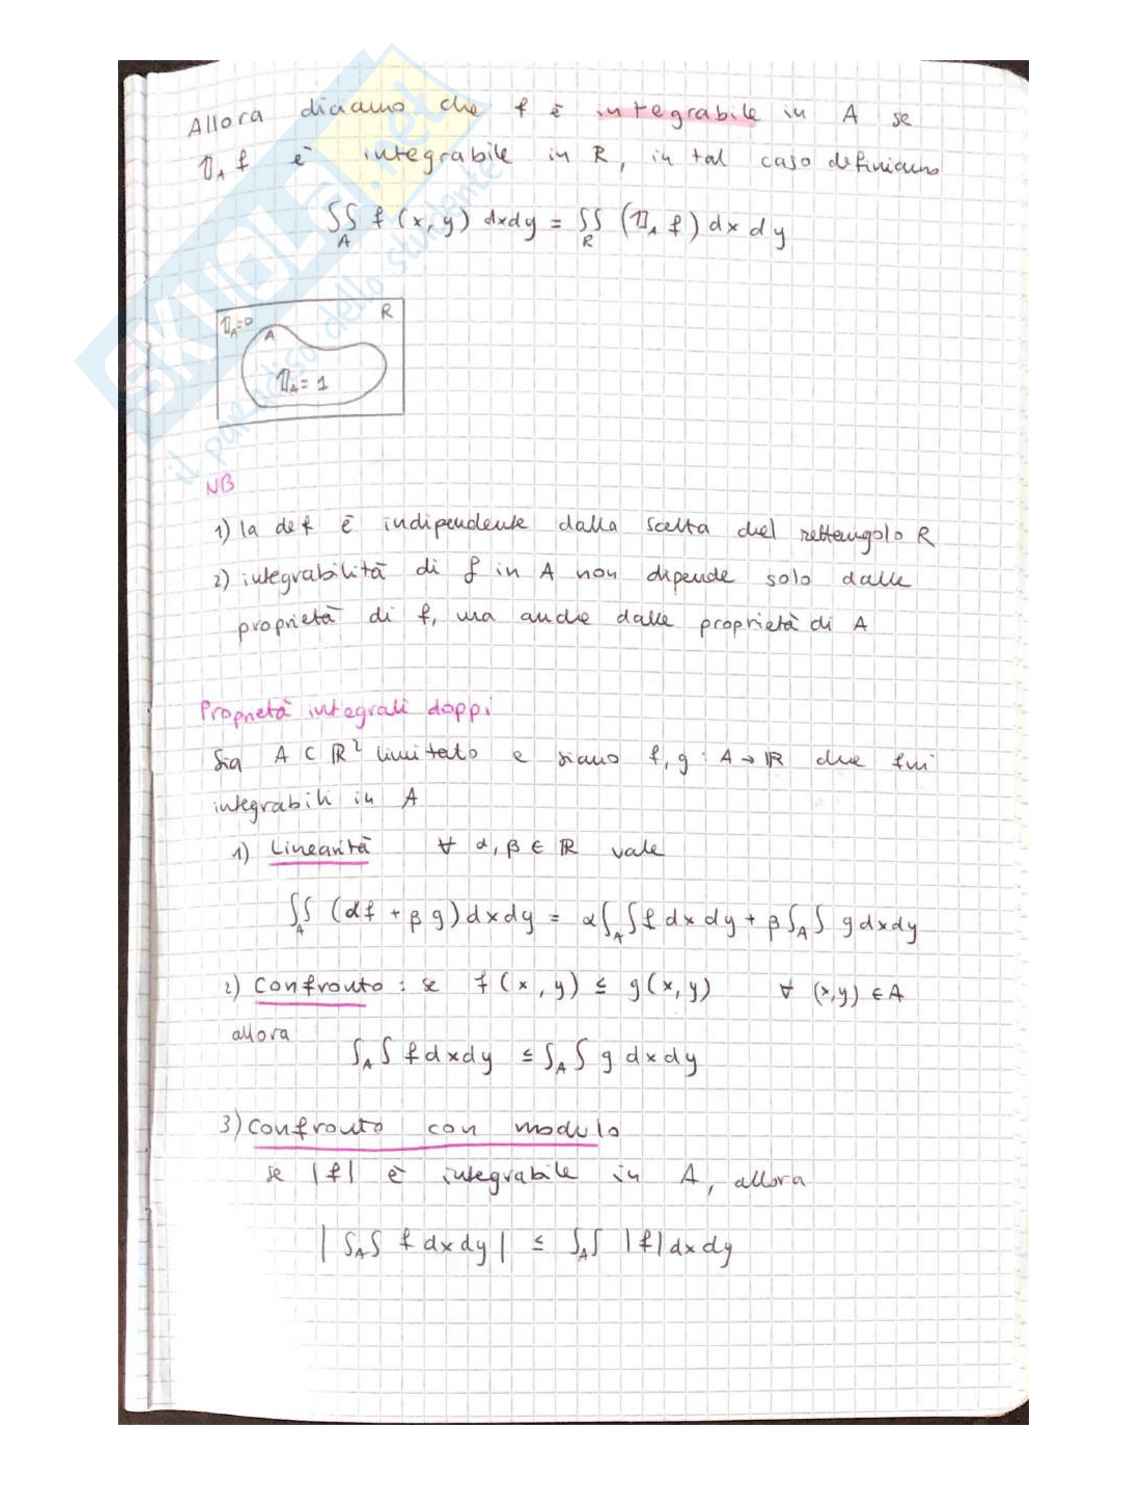 Allora diciamo che f è integrabile in A se
𝟙_A f è integrabile in R, in tal caso definiamo
∫∫_A f(x,y) dxdy = ∫∫_R (𝟙_A f) dx dy
𝟙_A=0 R
A
𝟙_A=1
NB
1) la def è indipendente dalla scelta del rettangolo R
2) integrabilità di f in A non dipende solo dalle
proprietà di f, ma anche dalle proprietà di A
Proprietà integrali doppi
Sia A ⊂ ℝ² limitato e siano f,g : A → ℝ due fni
integrabili in A
1) Linearità ∀ α, β ∈ ℝ vale
∫∫_A (αf + βg) dxdy = α∫_A∫ f dxdy + β∫_A∫ g dxdy
2) Confronto : se f(x,y) ≤ g(x,y) ∀ (x,y) ∈ A
allora
∫_A∫ f dxdy ≤ ∫_A∫ g dxdy
3) Confronto con modulo
se |f| è integrabile in A, allora
|∫_A∫ f dxdy| ≤ ∫_A∫ |f| dxdy
SKUOLA.net
il paradiso dello studente